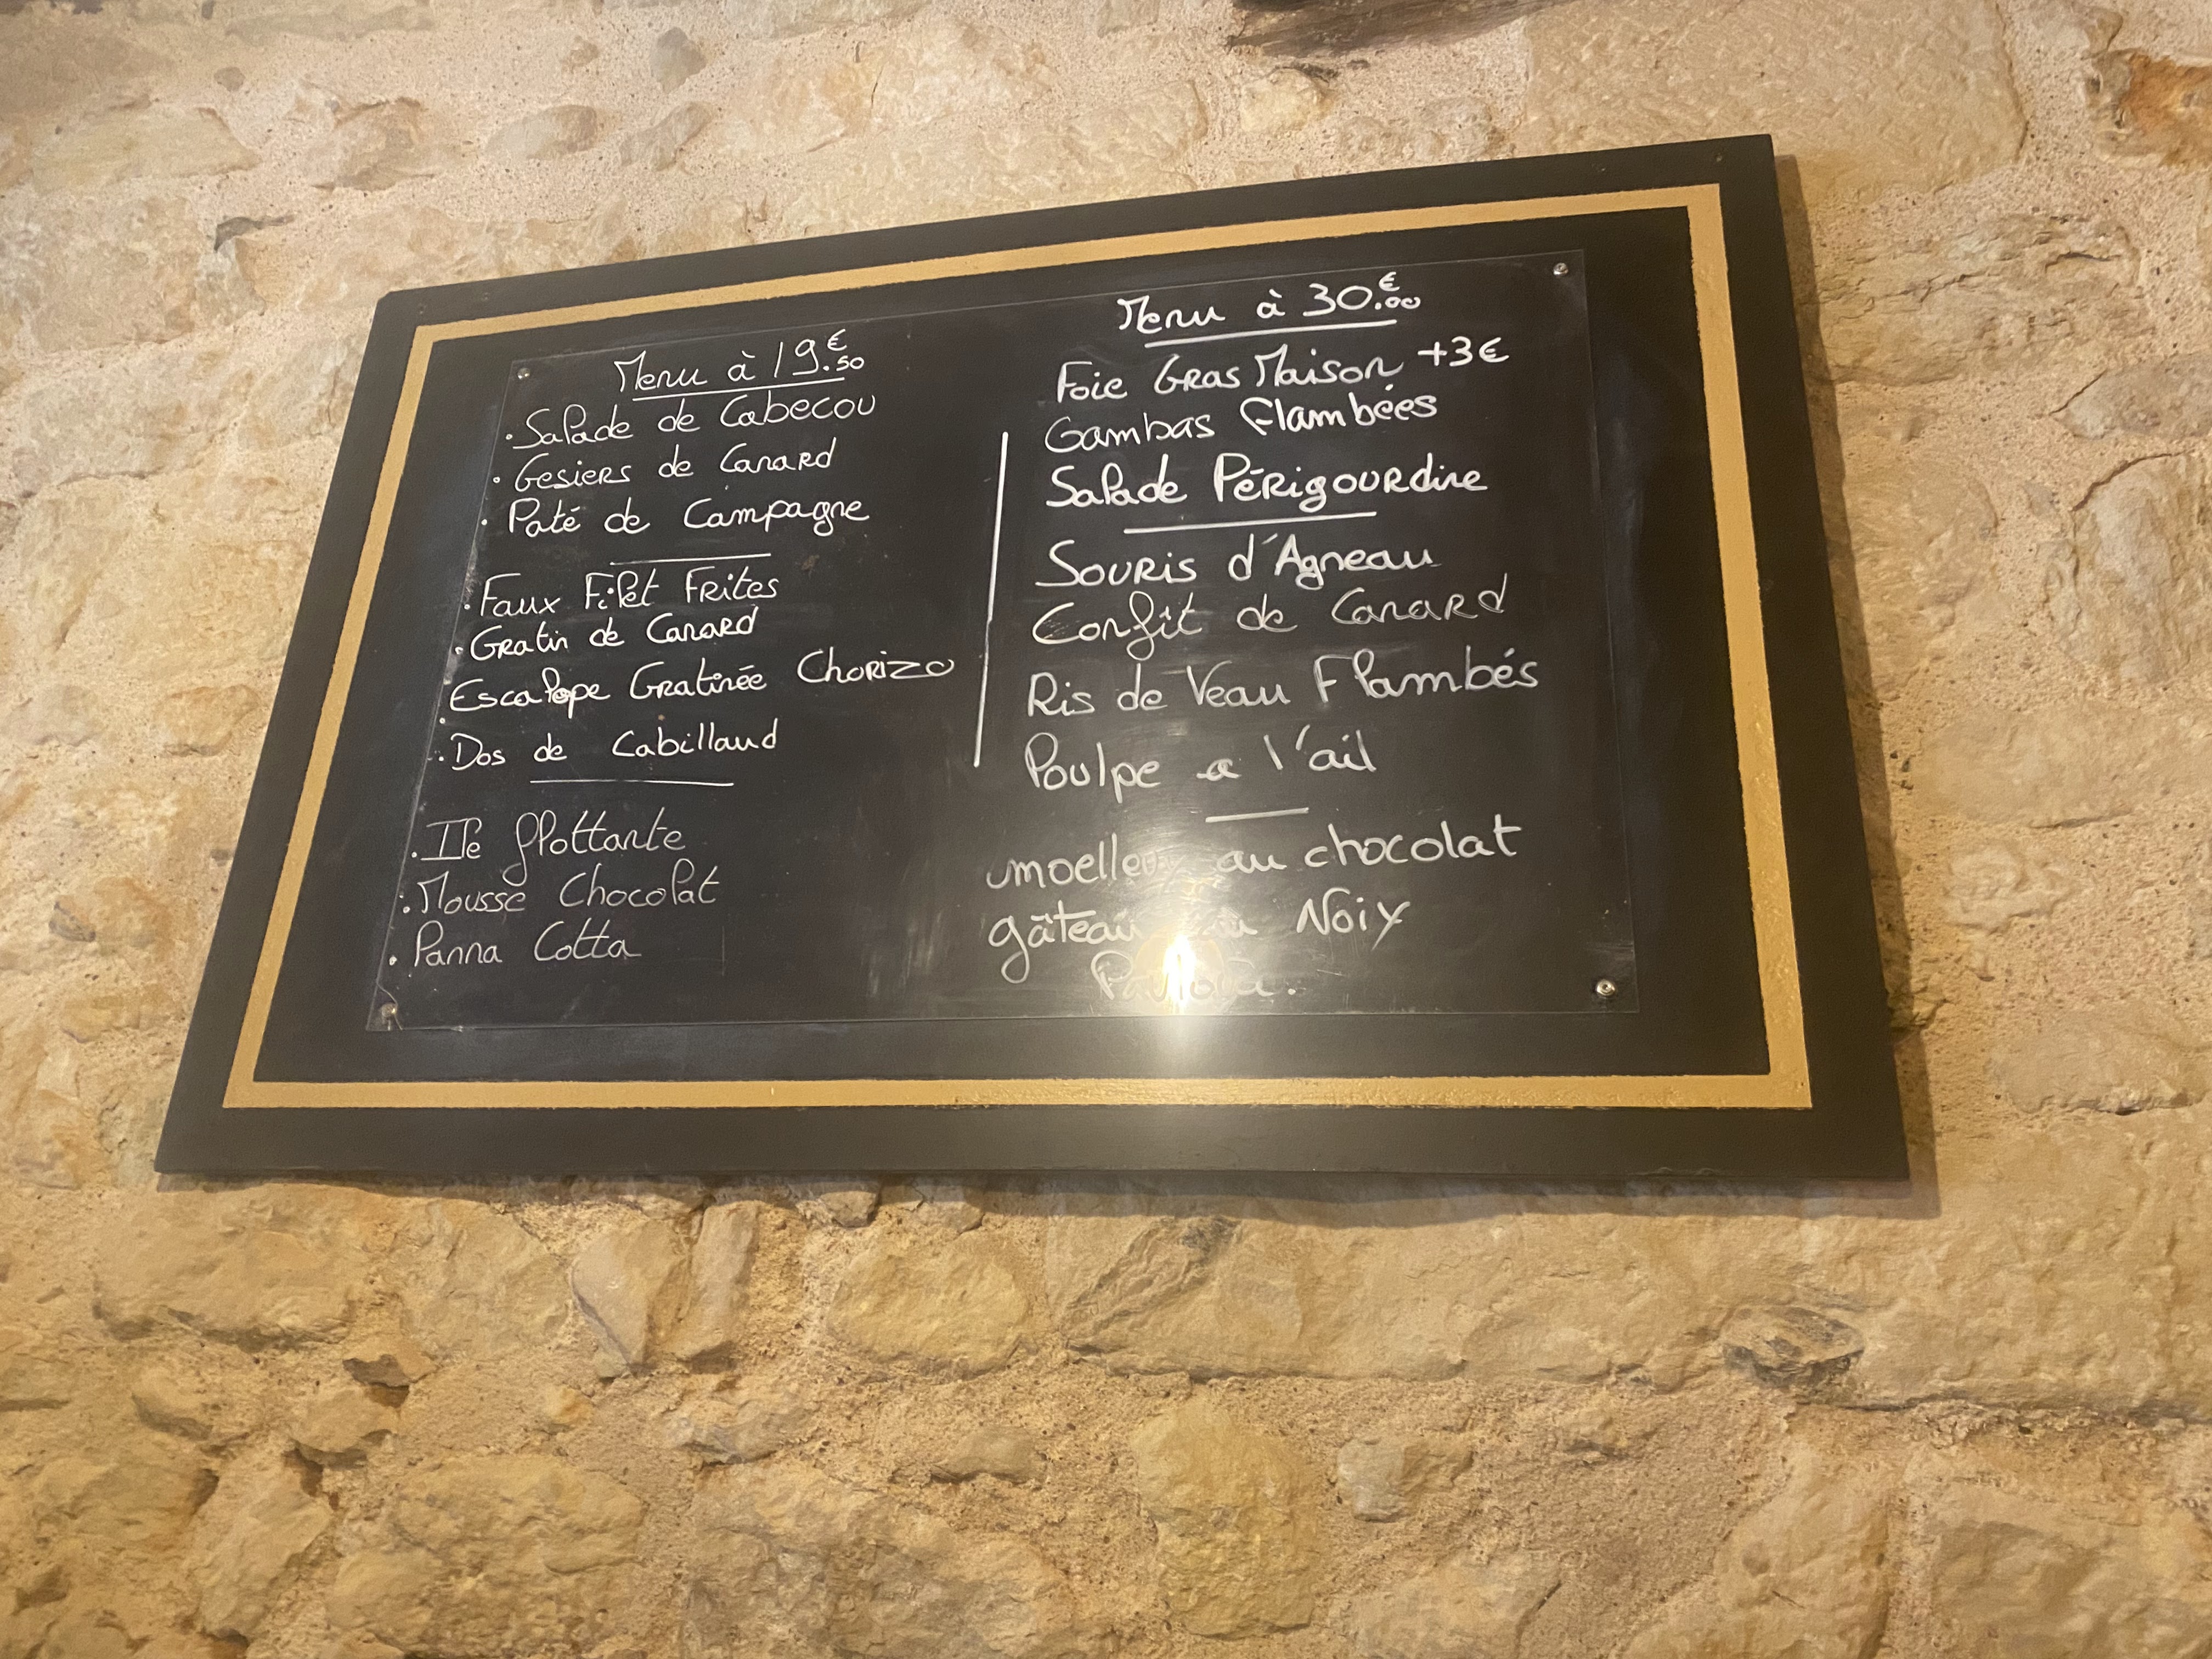 Menu à 19.50€
. Salade de Cabecou
. Gesiers de Canard
. Paté de Campagne
. Faux Filet Frites
. Gratin de Canard
. Escalope Gratinée Chorizo
. Dos de Cabillaud
. Ile flottante
. Mousse Chocolat
. Panna Cotta
Menu à 30.00€
Foie Gras Maison +3€
Gambas Flambées
Salade Périgourdine
Souris d'Agneau
Confit de Canard
Ris de Veau Flambés
Poulpe a l'ail
moelleux au chocolat
gâteau Noix